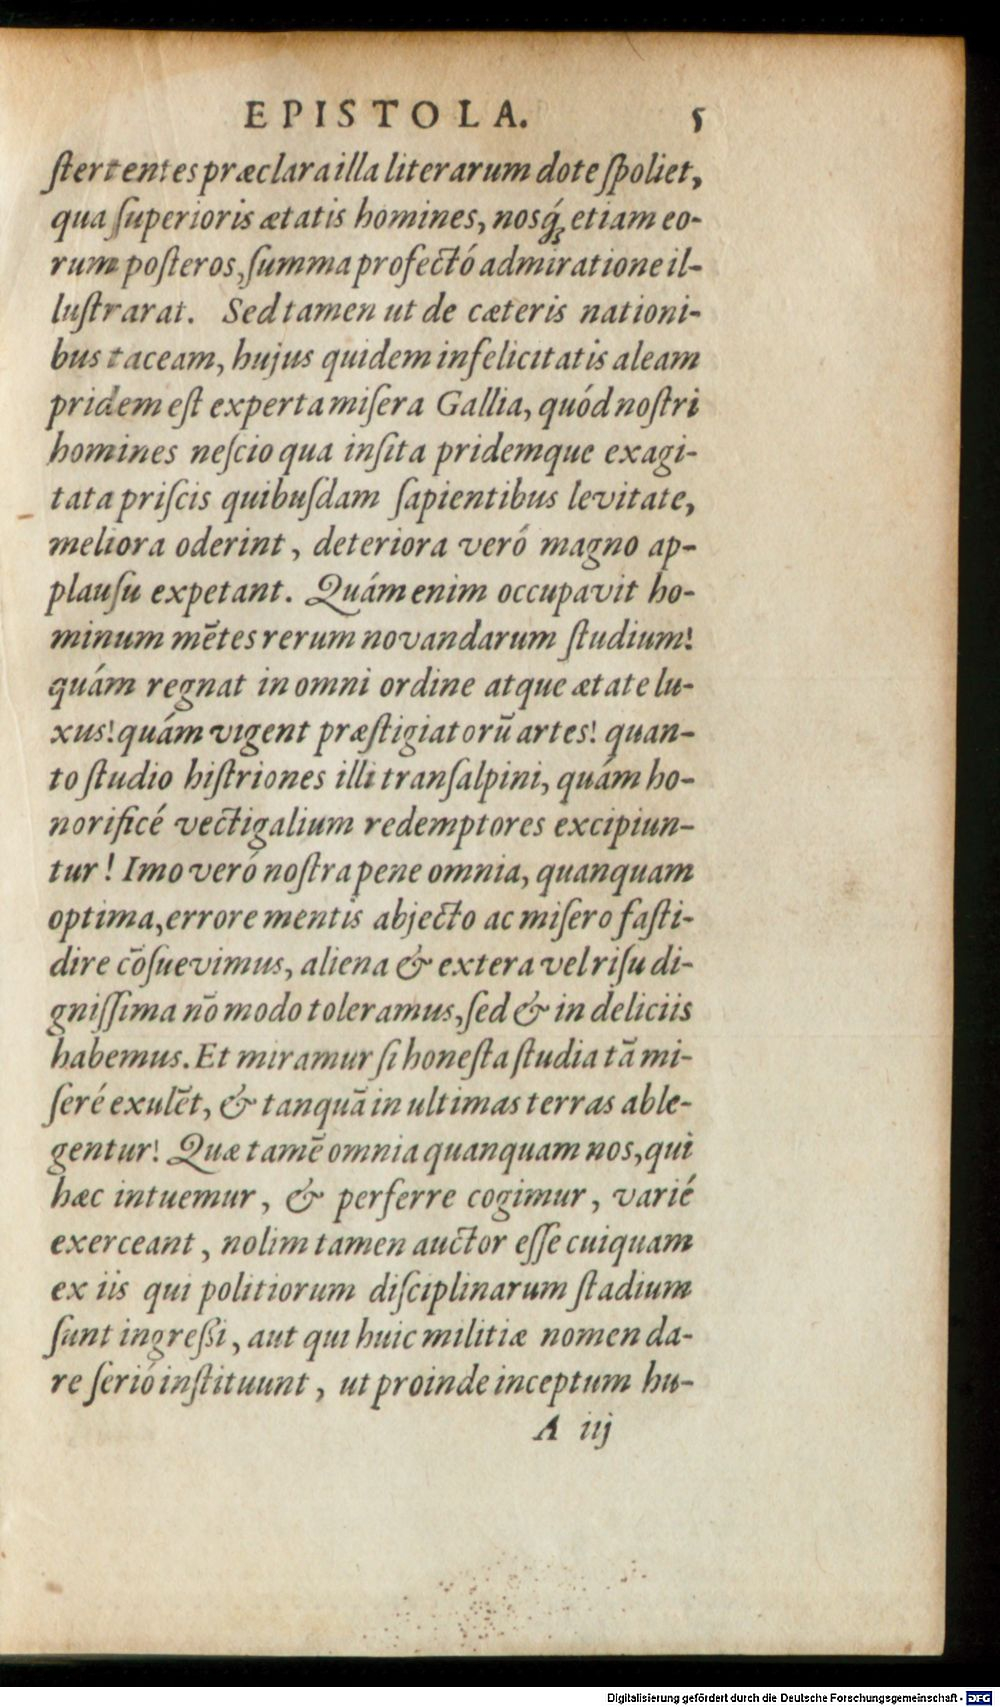 EPISTOLA. 5
ſtertentes præclara illa literarum dote ſpoliet,
qua ſuperioris ætatis homines, nosq́; etiam eo-
rum poſteros, ſumma profectó admiratione il-
luſtrarat. Sed tamen ut de cæteris nationi-
bus taceam, hujus quidem infelicitatis aleam
pridem eſt experta miſera Gallia, quód noſtri
homines neſcio qua inſita pridemque exagi-
tata priſcis quibuſdam ſapientibus levitate,
meliora oderint, deteriora veró magno ap-
plauſu expetant. Quám enim occupavit ho-
minum mētes rerum novandarum ſtudium!
quám regnat in omni ordine atque ætate lu-
xus! quám vigent præſtigiatorū artes! quan-
to ſtudio hiſtriones illi tranſalpini, quám ho-
norificé vectigalium redemptores excipiun-
tur! Imo veró noſtra pene omnia, quanquam
optima, errore mentis abjecto ac miſero faſti-
dire cōſuevimus, aliena & extera vel riſu di-
gniſſima nō modo toleramus, ſed & in deliciis
habemus. Et miramur ſi honeſta ſtudia tā mi-
ſeré exulēt, & tanquā in ultimas terras able-
gentur! Quæ tamē omnia quanquam nos, qui
hæc intuemur, & perferre cogimur, varié
exerceant, nolim tamen auctor eſſe cuiquam
ex iis qui politiorum diſciplinarum ſtadium
ſunt ingreßi, aut qui huic militiæ nomen da-
re ſerió inſtituunt, ut proinde inceptum hu-
A iij
Digitalisierung gefördert durch die Deutsche Forschungsgemeinschaft - DFG